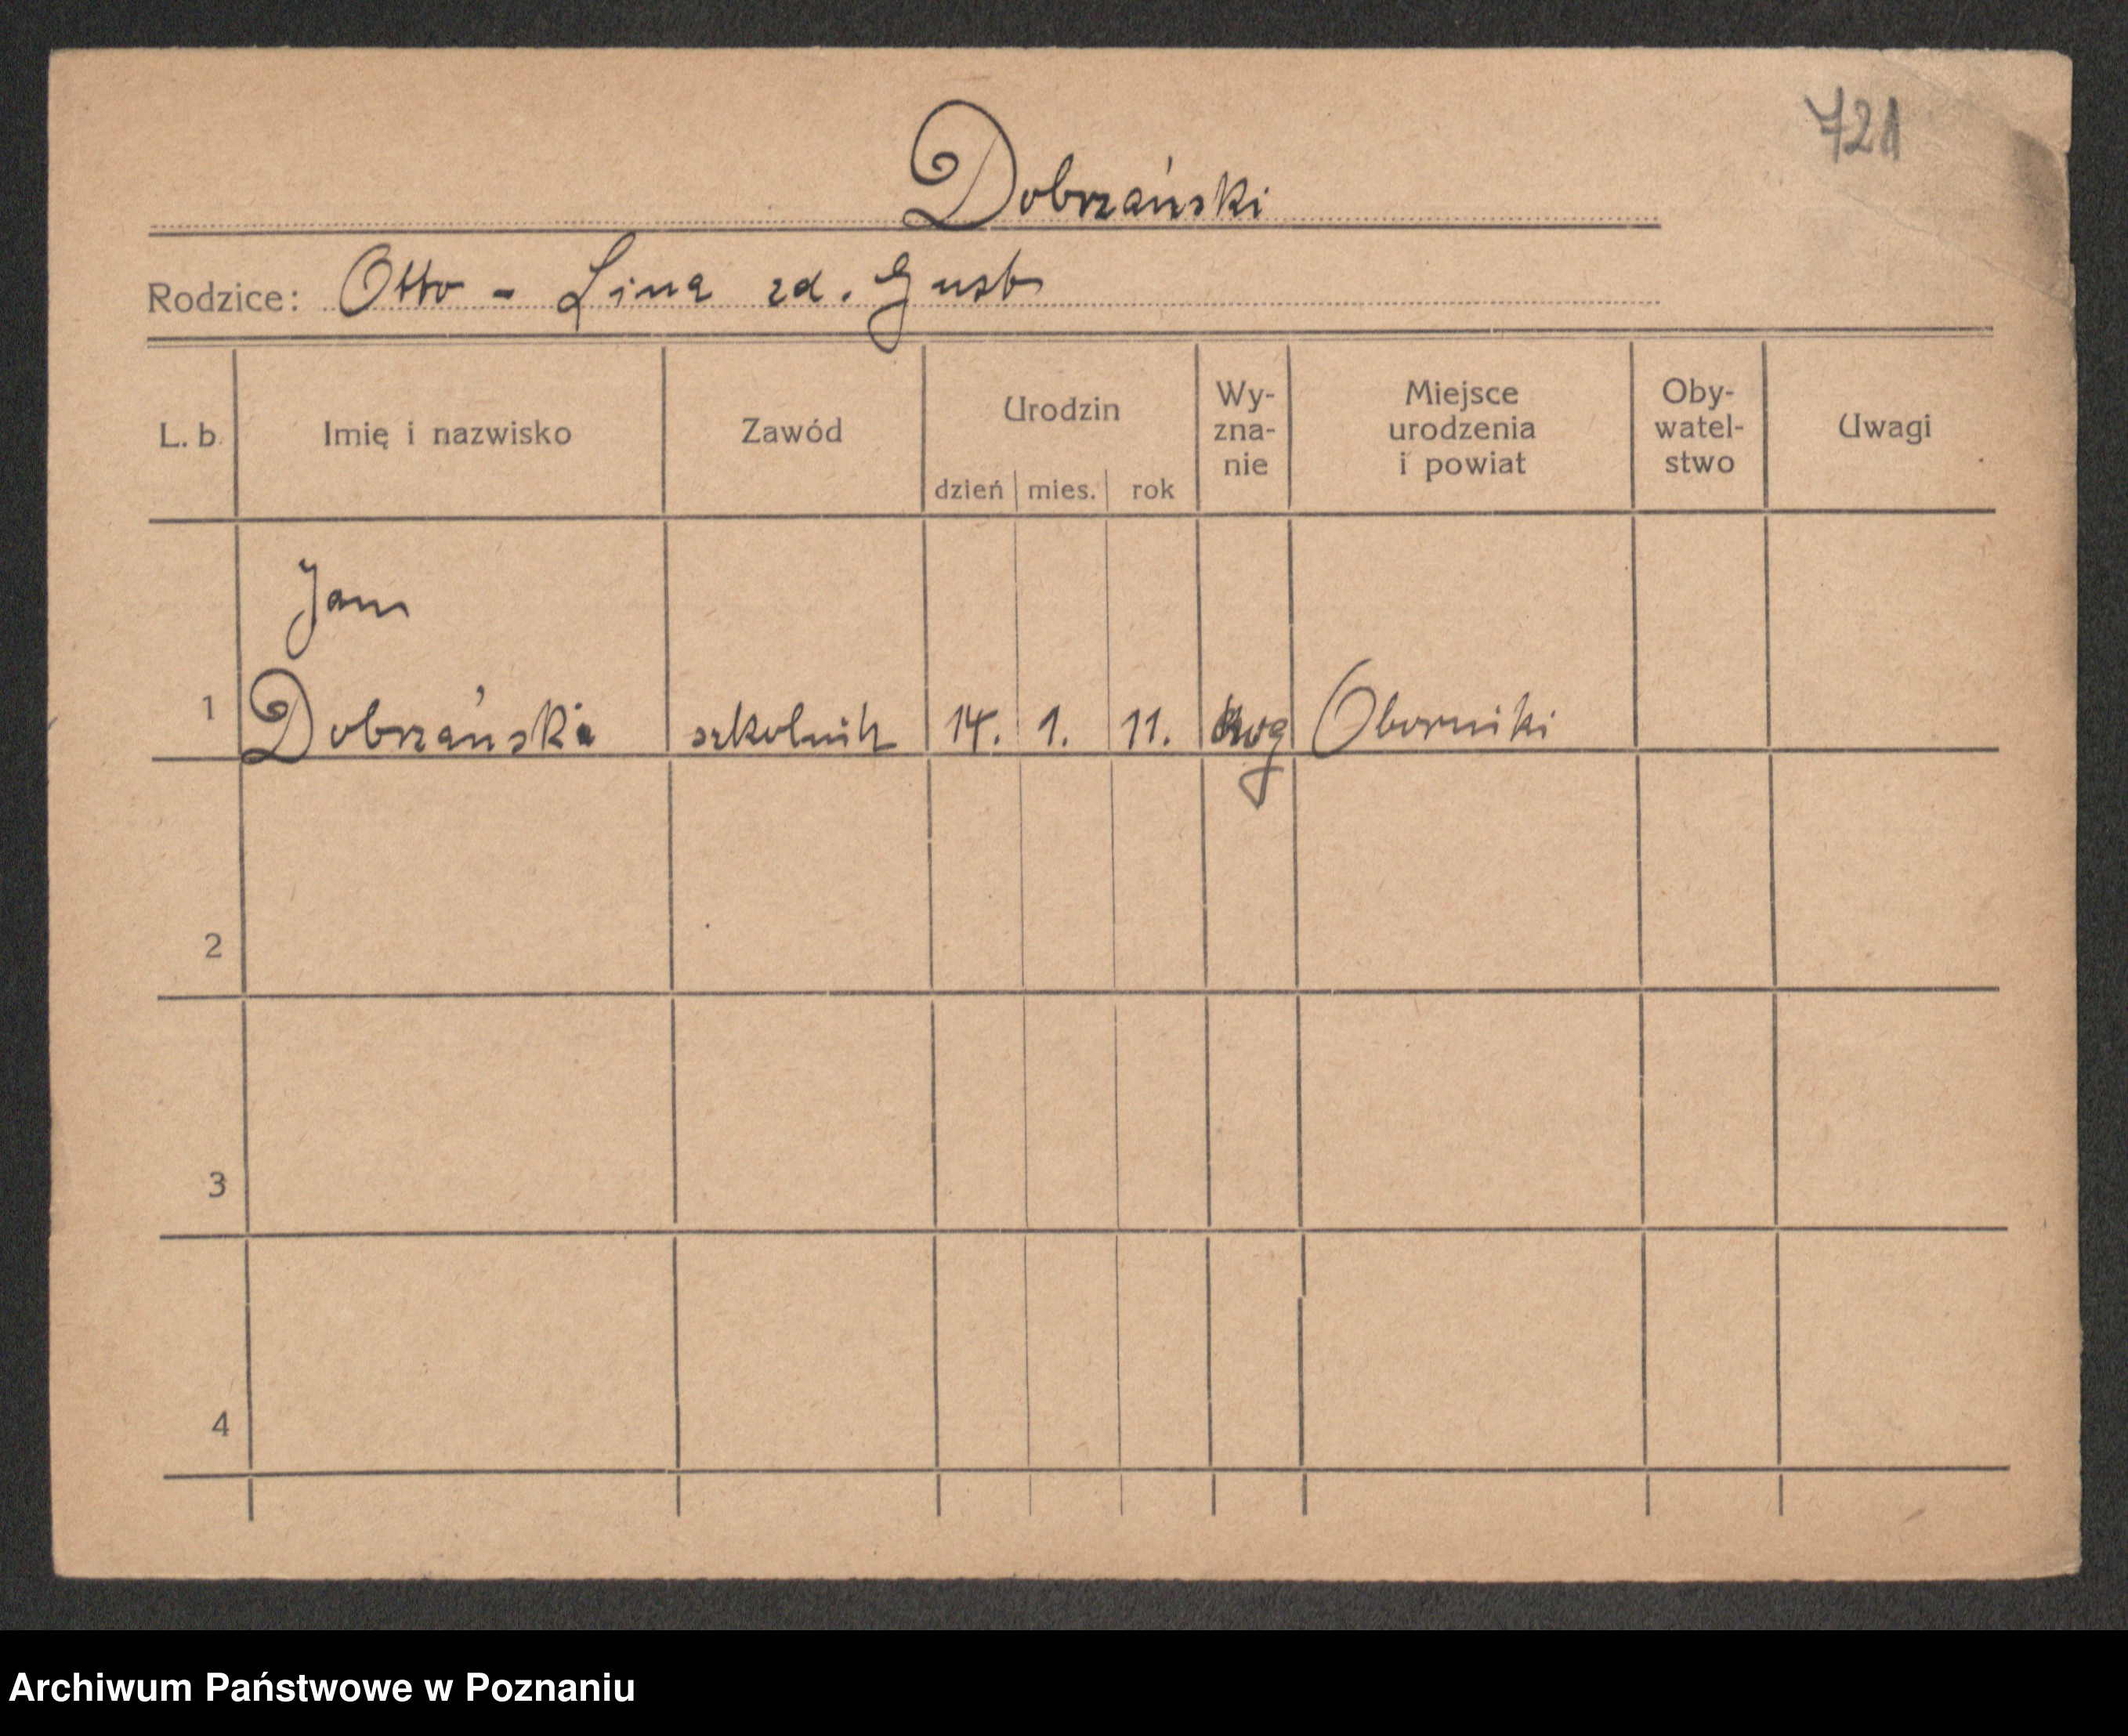 721
Dobrzański
Rodzice: Otto - Lina zd. Gust
L. b. Imię i nazwisko Zawód Urodzin Wy-zna-nie Miejsce urodzenia i powiat Oby-watel-stwo Uwagi
dzień mies. rok
Jan
1 Dobrzański szkolnik 14. 1. 11. Oborniki
2
3
4
Archiwum Państwowe w Poznaniu